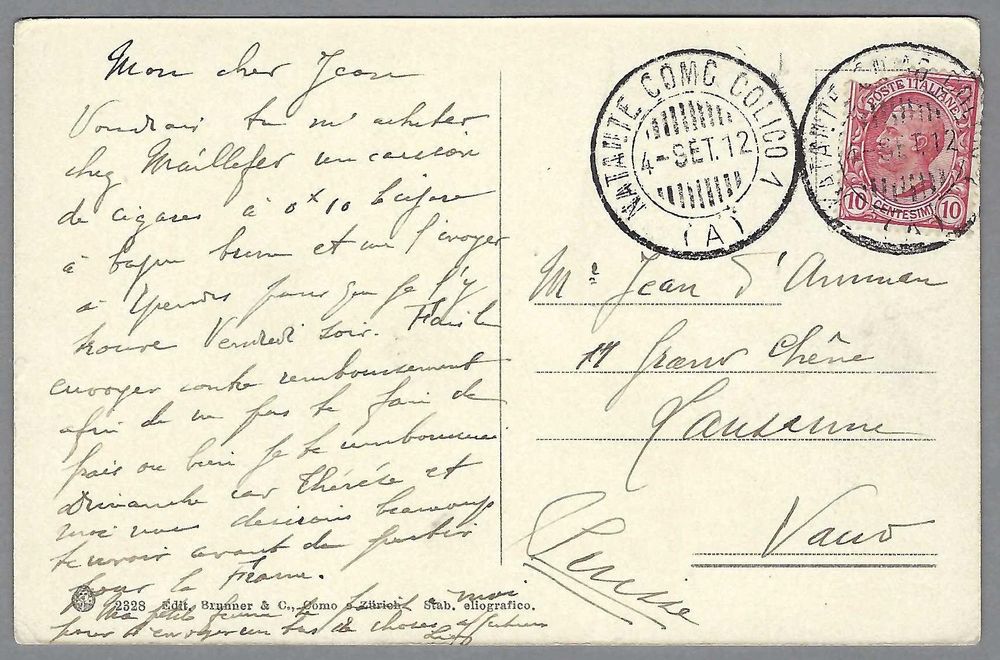 Mon cher Jean
Voudrais tu m'acheter
chez Maillefer un
de cigares à 0x10
à bague brune et me l'envoyer
à pour que je l'y
trouve Vendredi soir.
envoyer contre remboursement
afin de ne pas te faire de
frais ou bien je te
Dimanche car Thérèse et
moi nous désirons beaucoup
te revoir avant de partir
pour la France.
Ma petite femme
pour t'envoyer un tas de choses
NATANTE COMO COLICO 1
4-SET.12
(A)
POSTE ITALIANE
10 CENTESIMI 10
Mr Jean d'Amman
Grand Chêne
Lausanne
Vaud
Suisse
2328 Edit. Brunner & C., Como e Zürich. Stab. eliografico.